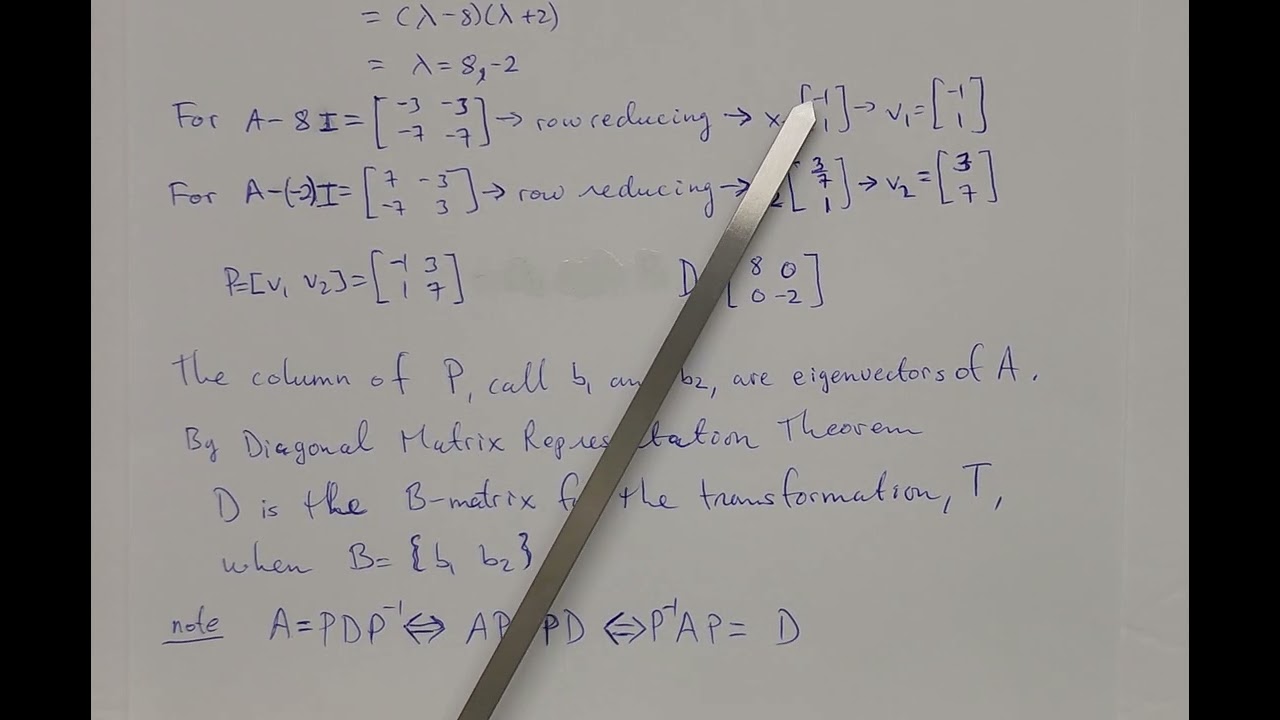 = (λ-8)(λ+2)
= λ=8,-2
For A-8I = [-3 -3; -7 -7] → row reducing → x [-1; 1] → v₁ = [-1; 1]
For A-(-2)I = [7 -3; -7 3] → row reducing → 2 [3/7; 1] → v₂ = [3; 7]
P=[v₁ v₂] = [-1 3; 1 7] D [8 0; 0 -2]
The column of P, call b₁ an b₂, are eigenvectors of A.
By Diagonal Matrix Represtation Theorem
D is the B-matrix f the transformation, T,
when B= {b₁ b₂}
note A=PDP⁻¹ ⇔ AP PD ⇔ P⁻¹AP = D